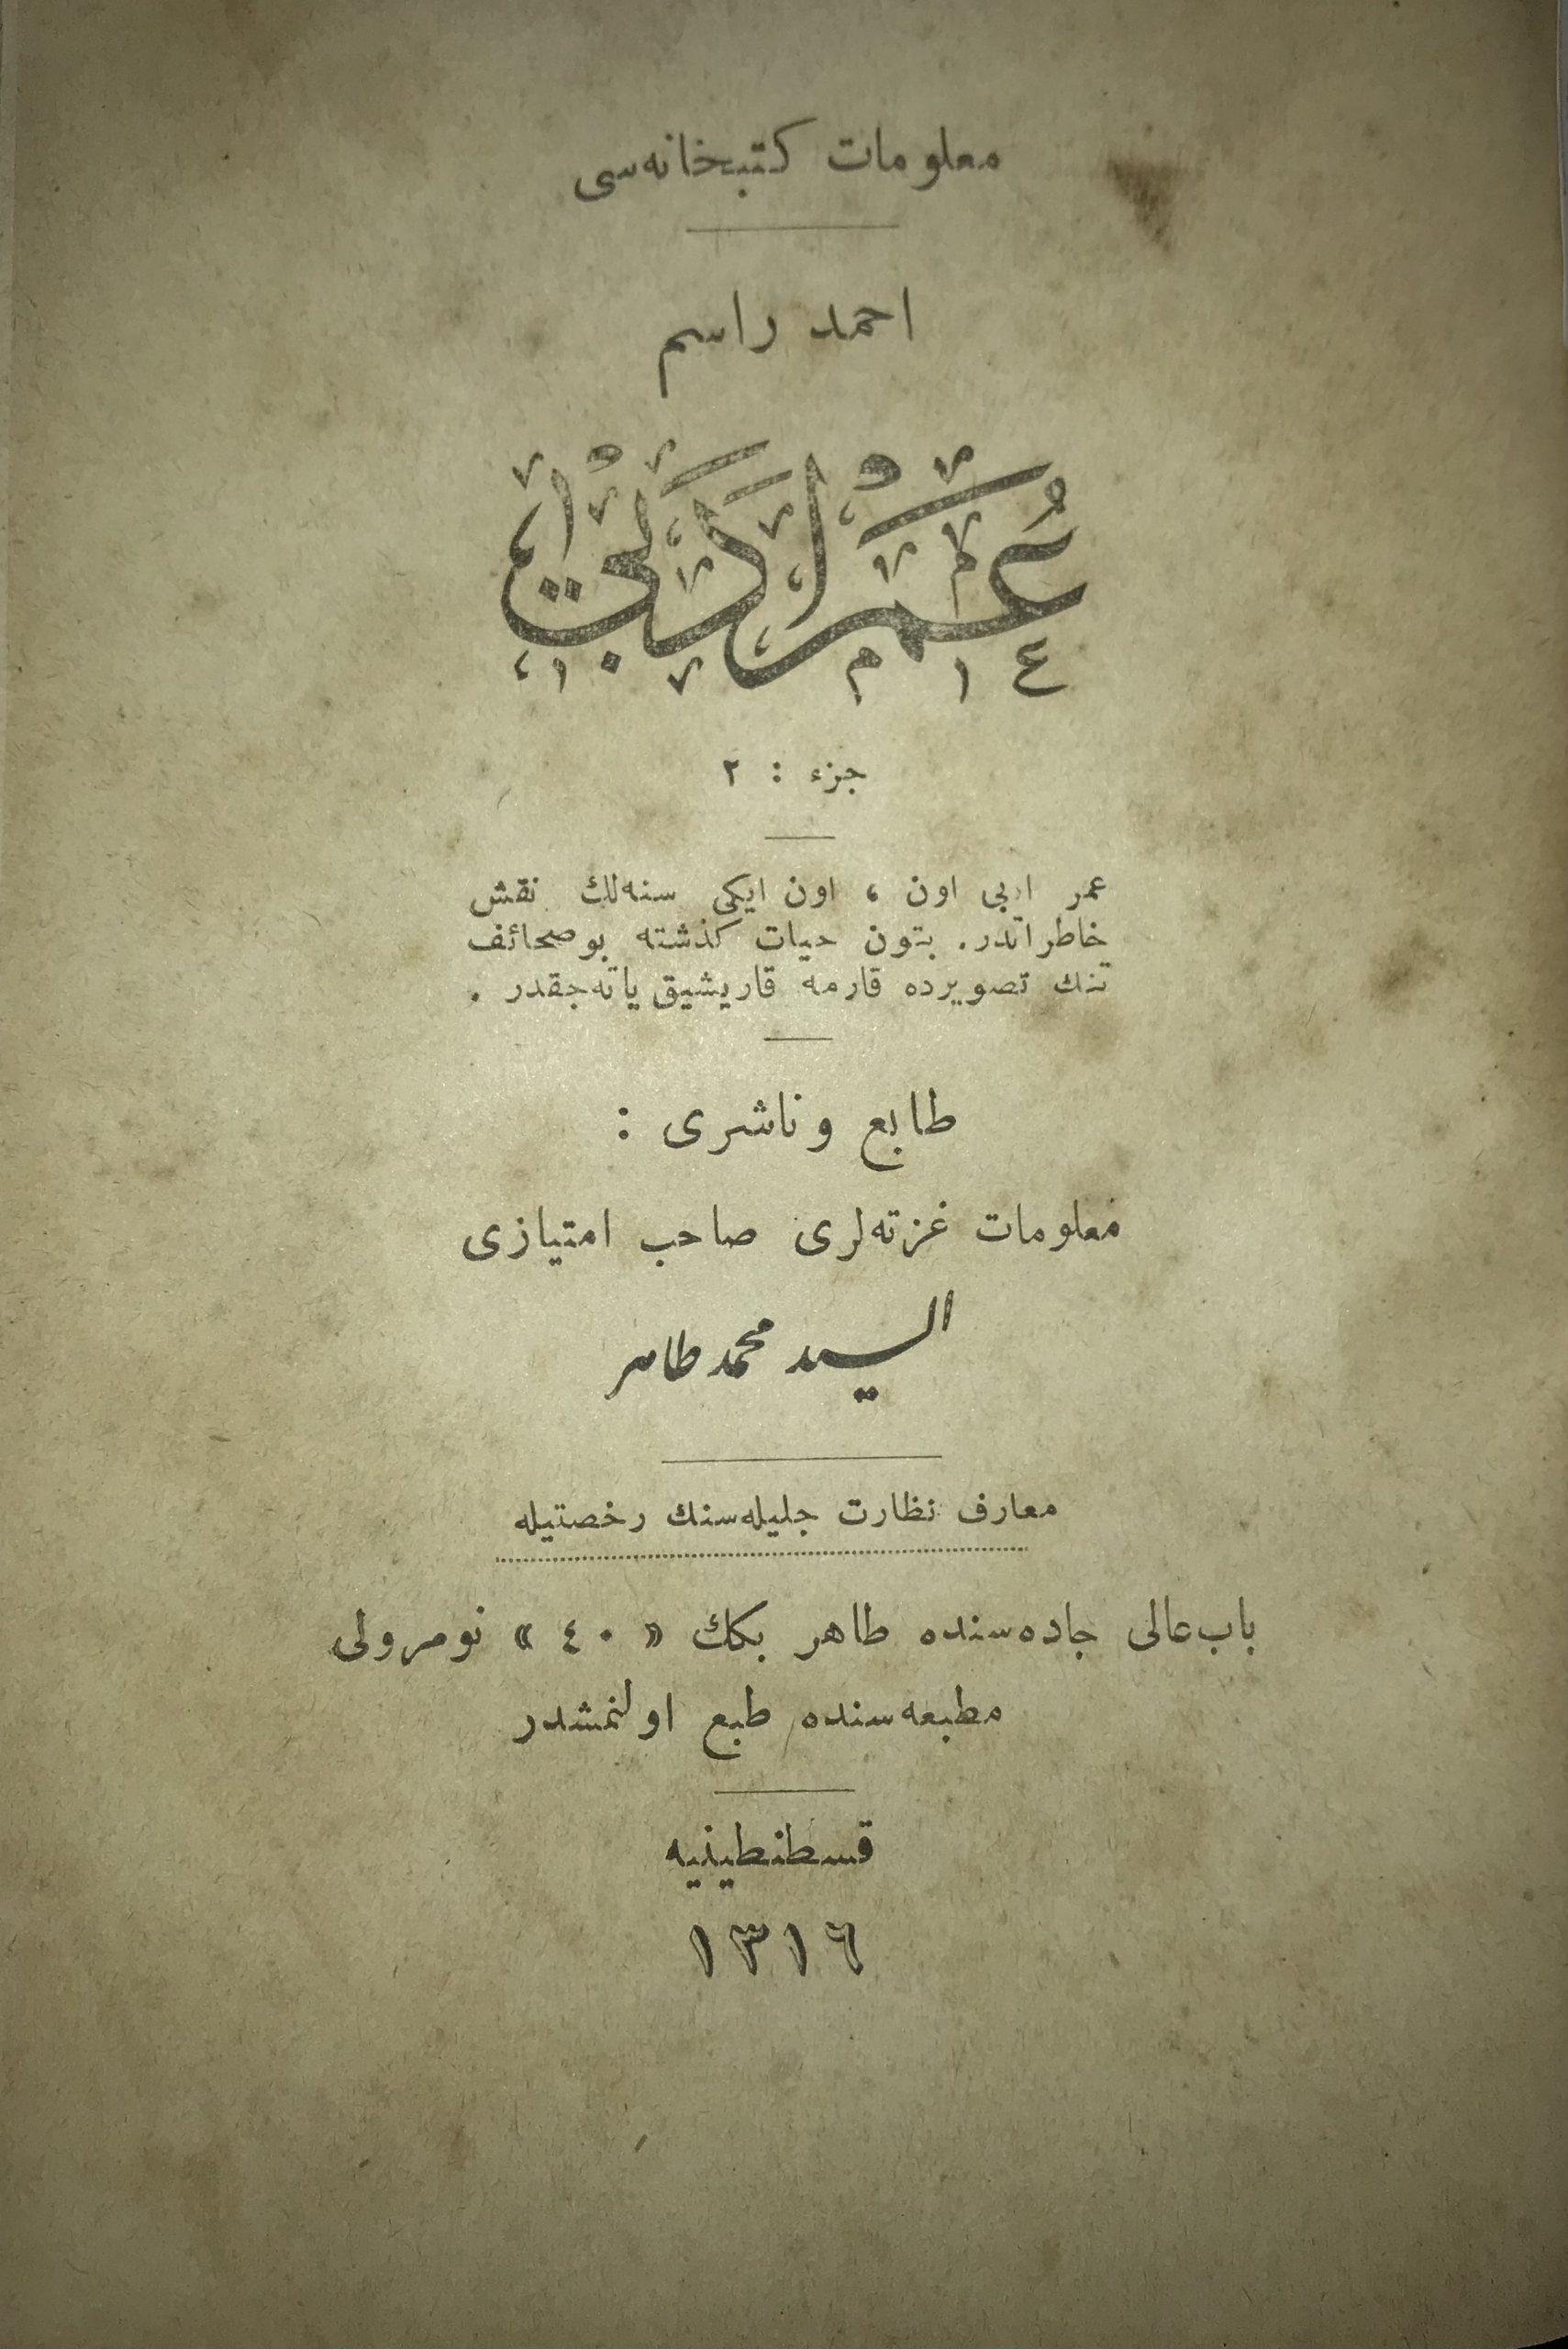 معلومات كتبخانه‌سی
احمد راسم
عُمَرِ اَدَبِی
جزء : ٢
عمر ادبی اون ، اون ایكی سنه‌لك نقش
خاطراتدر. بتون حیات كذشته بو صحائف
تنك تصویرده قارمه قاریشیق یاته‌جقدر .
طابع وناشری :
معلومات غزته‌لری صاحب امتیازی
السید محمد طاهر
معارف نظارت جلیله‌سنك رخصتیله
باب‌عالی جاده‌سنده طاهر بكك « ٤٠ » نومرولی
مطبعه‌سنده طبع اولنمشدر
قسطنطینیه
١٣١٦